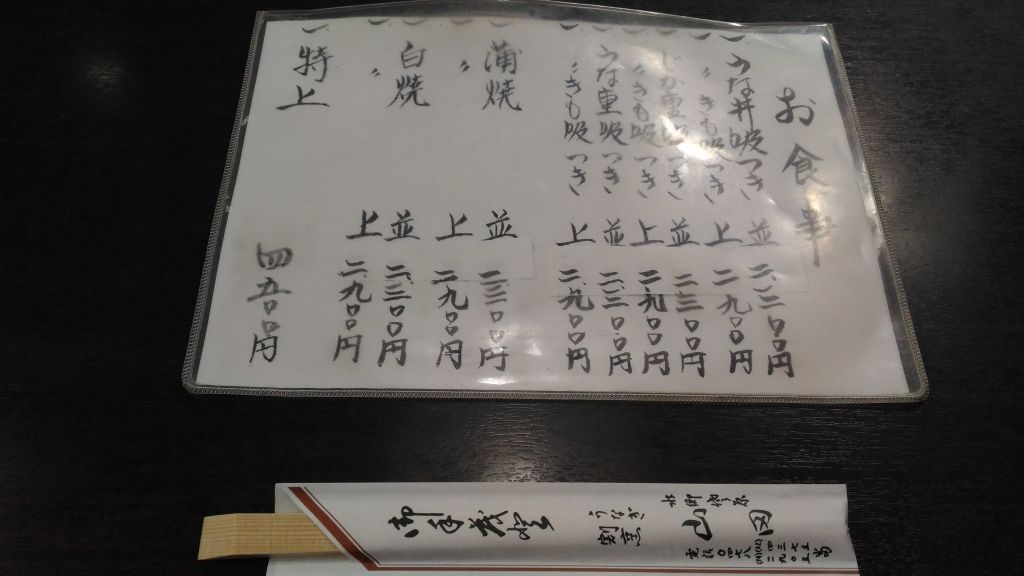 お食事
一、うな丼吸つき 並 二、三〇〇円
〃 きも吸つき 上 二、九〇〇円
一、じか重吸つき 並 二、三〇〇円
〃 きも吸つき 上 二、九〇〇円
一、うな重吸つき 並 二、三〇〇円
〃 きも吸つき 上 二、九〇〇円
一、蒲焼 並 二、三〇〇円
〃 上 二、九〇〇円
一、白焼 並 二、三〇〇円
〃 上 二、九〇〇円
一、特上 四、五〇〇円
御手茂登
うなぎ
割烹
山田
電話〇四七八